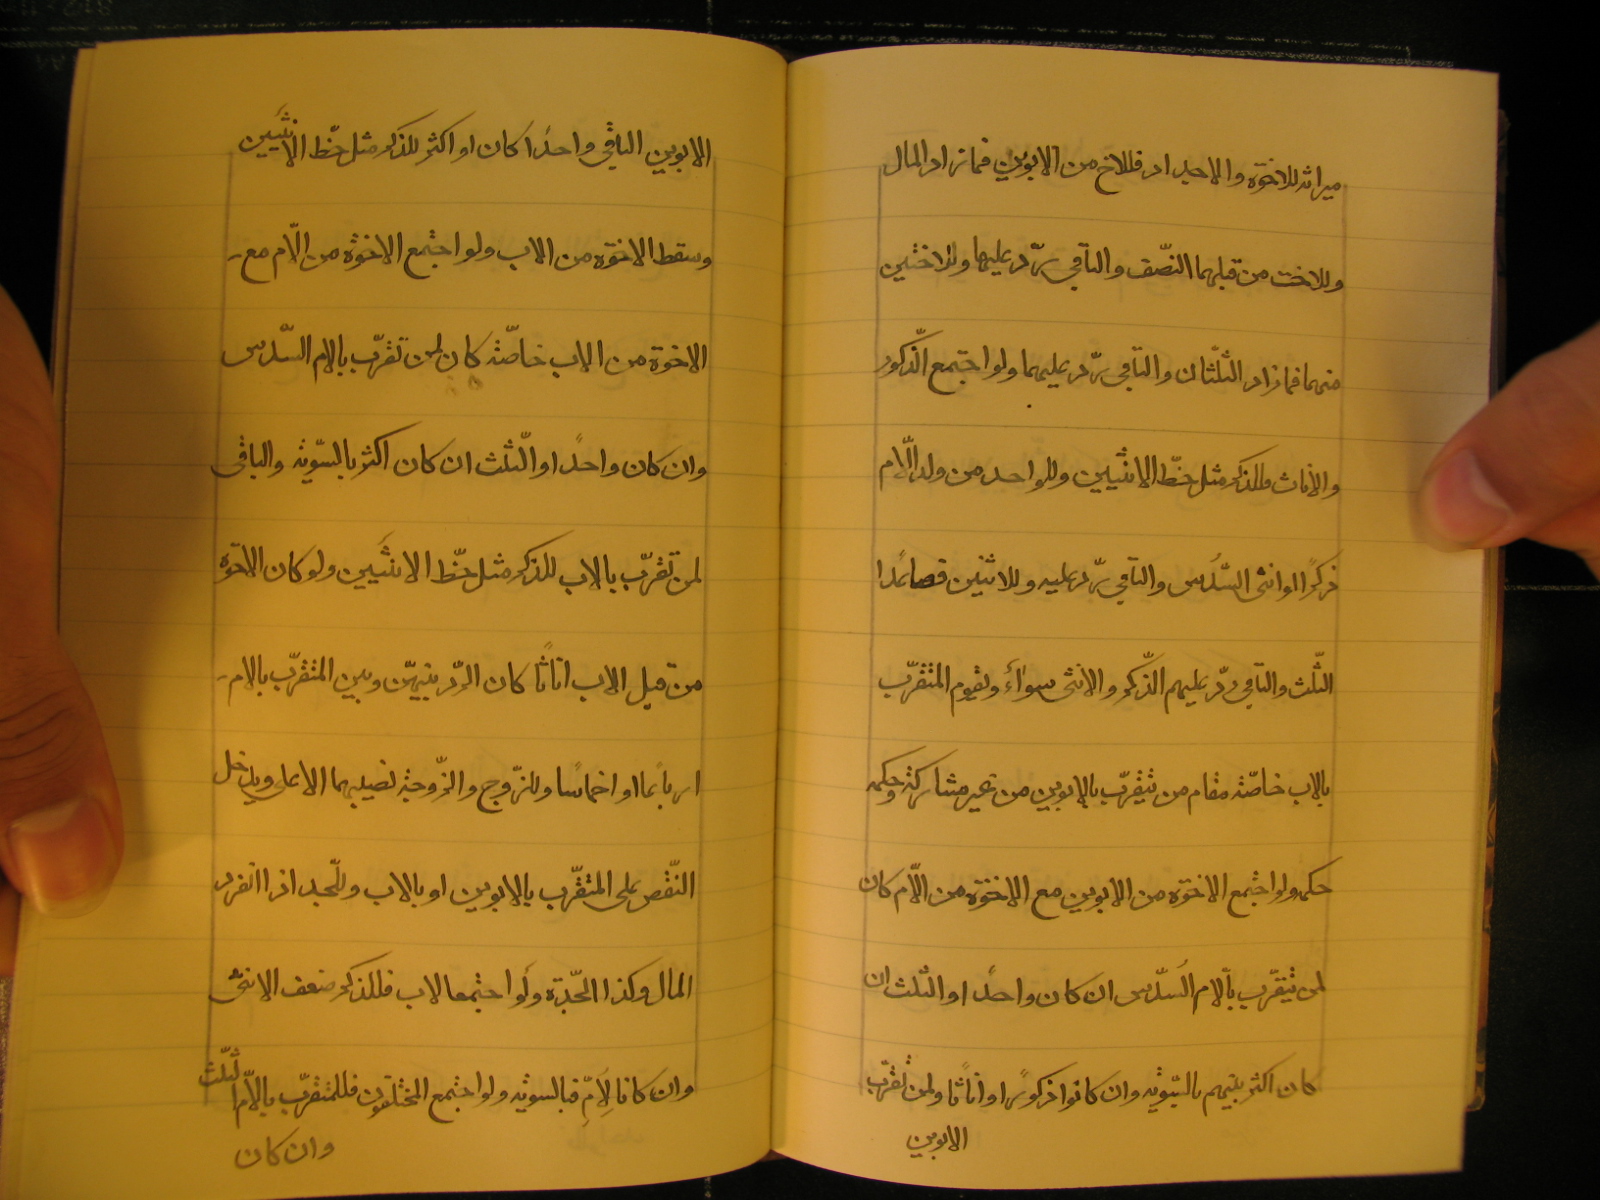 ميراثه للاخوة والاجداد فللاخ من الابوين فمازاد المال
وللاخت من قبلهما النّصف والباقي يردّ عليها وللاختين
منهما فمازاد الثلثان والباقي يردّ عليهما ولو اجتمع الذّكور
والأناث فللذكر مثل حظّ الانثيين وللواحد من ولد الّام
ذكرًا او انثى السّدُس والباقي يردّ عليه وللاثنين فصاعدًا
الثّلث والباقي ردّ عليهم الذّكر والانثى سواءٌ ويقوم المتقرّب
بالاب خاصّة مقام من يتقرّب بالابوين من غير مشاركة وحكمه
حكمه ولو اجتمع الاخوة من الابوين مع الاخوة من الّام كان
لمن يتقرّب بالام السّدس ان كان واحدًا او الثّلث ان
كان اكثر بينهم بالسّويّه وان كانوا ذكورًا او أناثا ولمن تقرّب
الابوين
الابوين الباقى واحدًا كان او اكثر للذكر مثل حظّ الانثَيين
وسقط الاخوة من الاب ولو اجتمع الاخوة من الّام مع
الاخوة من الاب خاصّة كان لمن تقرّب بالام السّدس
وان كان واحدًا او الثّلث ان كان اكثر بالسّوية والباقى
لمن تقرّب بالاب للذكر مثل حظّ الانثَيين ولو كان الاخوة
من قبل الاب اناثًا كان الردّ بينهنّ وبين المتقرّب بالام
ارباعا او اخماسًا وللزّوج والزّوجة نصيبهما الاعلى ويدخل
النّقص على المتقرّب بالابوين او بالاب وللّجد اذا انفرد
المال وكذا الجدّة ولو اجتمعا لاب فللذكر ضعف الانثى
وان كانا لاِمّ فبالسويه ولو اجتمع المختلفون فللمتقرّب بالّام الثّلث
وان كان